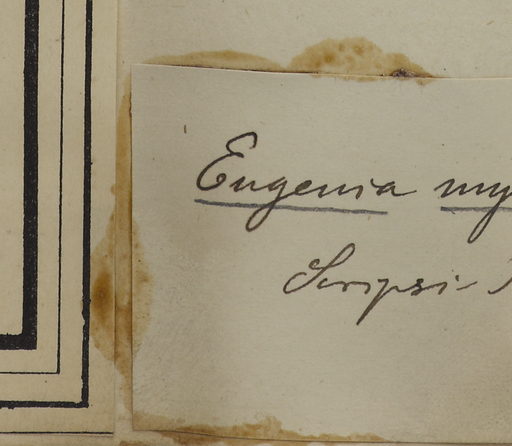 Eugenia my
Scripsi